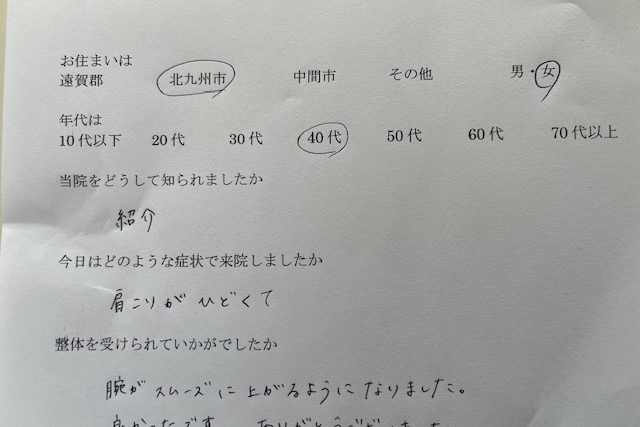 お住まいは
遠賀郡 北九州市 中間市 その他 男・女
年代は
10代以下 20代 30代 40代 50代 60代 70代以上
当院をどうして知られましたか
紹介
今日はどのような症状で来院しましたか
肩こりがひどくて
整体を受けられていかがでしたか
腕がスムーズに上がるようになりました。
良かったです ありがとうございました